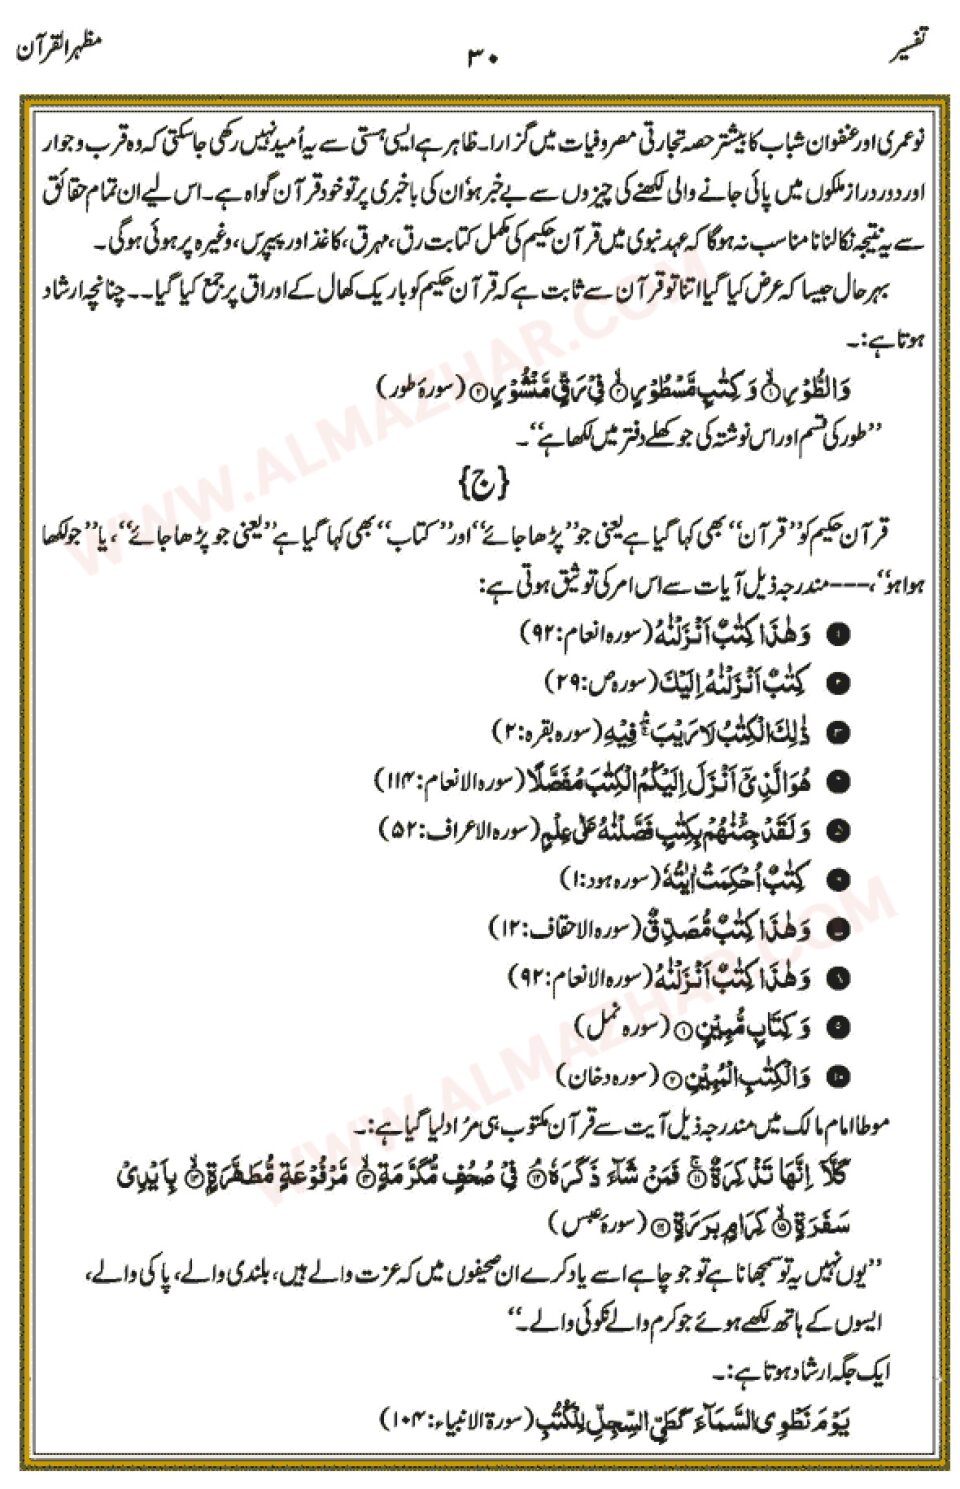 تفسیر
۳۰
مظہر القرآن
نوعمری اور عنفوان شباب کا بیشتر حصہ تجارتی مصروفیات میں گزارا۔ ظاہر ہے ایسی ہستی سے یہ اُمید نہیں رکھی جا سکتی کہ وہ قرب و جوار
اور دور دراز ملکوں میں پائی جانے والی لکھنے کی چیزوں سے بے خبر ہو' اُن کی باخبری پر تو خود قرآن گواہ ہے۔ اس لیے ان تمام حقائق
سے یہ نتیجہ نکالنا نا مناسب نہ ہوگا کہ عہد نبوی میں قرآن حکیم کی مکمل کتابت رق، مہرق، کاغذ اور پیپرس، وغیرہ پر ہوئی ہوگی۔
بہر حال جیسا کہ عرض کیا گیا اتنا تو قرآن سے ثابت ہے کہ قرآن حکیم کو باریک کھال کے اوراق پر جمع کیا گیا۔۔ چنانچہ ارشاد
ہوتا ہے:۔
وَالطُّوْرِ ۙ﴿۱﴾ وَ كِتٰبٍ مَّسْطُوْرٍ ۙ﴿۲﴾ فِیْ رَقٍّ مَّنْشُوْرٍ ﴿۳﴾ (سورۂ طور)
’’طور کی قسم اور اس نوشتہ کی جو کھلے دفتر میں لکھا ہے‘‘۔
{ج}
قرآن حکیم کو ’’قرآن‘‘ بھی کہا گیا ہے یعنی جو ’’پڑھا جائے‘‘ اور ’’کتاب‘‘ بھی کہا گیا ہے ’’یعنی جو پڑھا جائے‘‘، یا ’’جو لکھا
ہوا ہو‘‘، --- مندرجہ ذیل آیات سے اس امر کی توثیق ہوتی ہے:
۱ وَ هٰذَا كِتٰبٌ اَنْزَلْنٰهُ (سورہ انعام:۹۲)
۲ كِتٰبٌ اَنْزَلْنٰهُ اِلَیْكَ (سورہ ص:۲۹)
۳ ذٰلِكَ الْكِتٰبُ لَا رَیْبَ ۛۚ فِیْهِ (سورہ بقرہ:۲)
۴ هُوَ الَّذِیْۤ اَنْزَلَ اِلَیْكُمُ الْكِتٰبَ مُفَصَّلًا (سورہ الانعام:۱۱۴)
۵ وَ لَقَدْ جِئْنٰهُمْ بِكِتٰبٍ فَصَّلْنٰهُ عَلٰی عِلْمٍ (سورہ الاعراف:۵۲)
۶ كِتٰبٌ اُحْكِمَتْ اٰیٰتُهٗ (سورہ ہود:۱)
۷ وَ هٰذَا كِتٰبٌ مُّصَدِّقٌ (سورہ الاحقاف:۱۲)
۸ وَ هٰذَا كِتٰبٌ اَنْزَلْنٰهُ (سورہ الانعام:۹۲)
۹ وَ كِتَابٍ مُّبِیْنٍ ﴿۱﴾ (سورہ نمل)
۱۰ وَ الْكِتٰبِ الْمُبِیْنِ ﴿۲﴾ (سورہ دخان)
موطا امام مالک میں مندرجہ ذیل آیت سے قرآن مکتوب ہی مراد لیا گیا ہے:۔
كَلَّاۤ اِنَّهَا تَذْكِرَةٌ ۚ﴿۱۱﴾ فَمَنْ شَآءَ ذَكَرَهٗ ۘ﴿۱۲﴾ فِیْ صُحُفٍ مُّكَرَّمَةٍ ۙ﴿۱۳﴾ مَّرْفُوْعَةٍ مُّطَهَّرَةٍۭ ۙ﴿۱۴﴾ بِاَیْدِیْ
سَفَرَةٍ ۙ﴿۱۵﴾ كِرَامٍۭ بَرَرَةٍ ﴿۱۶﴾ (سورۂ عبس)
’’یوں نہیں یہ تو سمجھانا ہے تو جو چاہے اسے یاد کرے ان صحیفوں میں کہ عزت والے ہیں، بلندی والے، پاکی والے،
ایسوں کے ہاتھ لکھے ہوئے جو کرم والے نکوئی والے۔‘‘
ایک جگہ ارشاد ہوتا ہے:۔
یَوْمَ نَطْوِی السَّمَآءَ كَطَیِّ السِّجِلِّ لِلْكُتُبِ (سورۃ الانبیاء:۱۰۴)
WWW.ALMAZHAR.COM
WWW.ALMAZHAR.COM